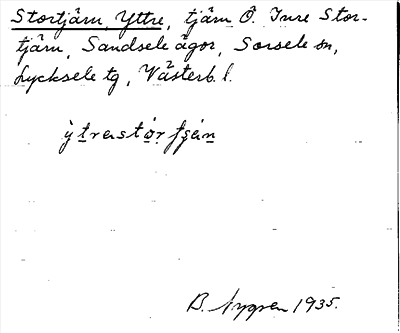 Stortjärn, Yttre, tjärn Ö. Inre Stor-
tjärn, Sandsele ägor, Sorsele sn,
Lycksele tg, Västerb. l.
B. Nygren 1935.